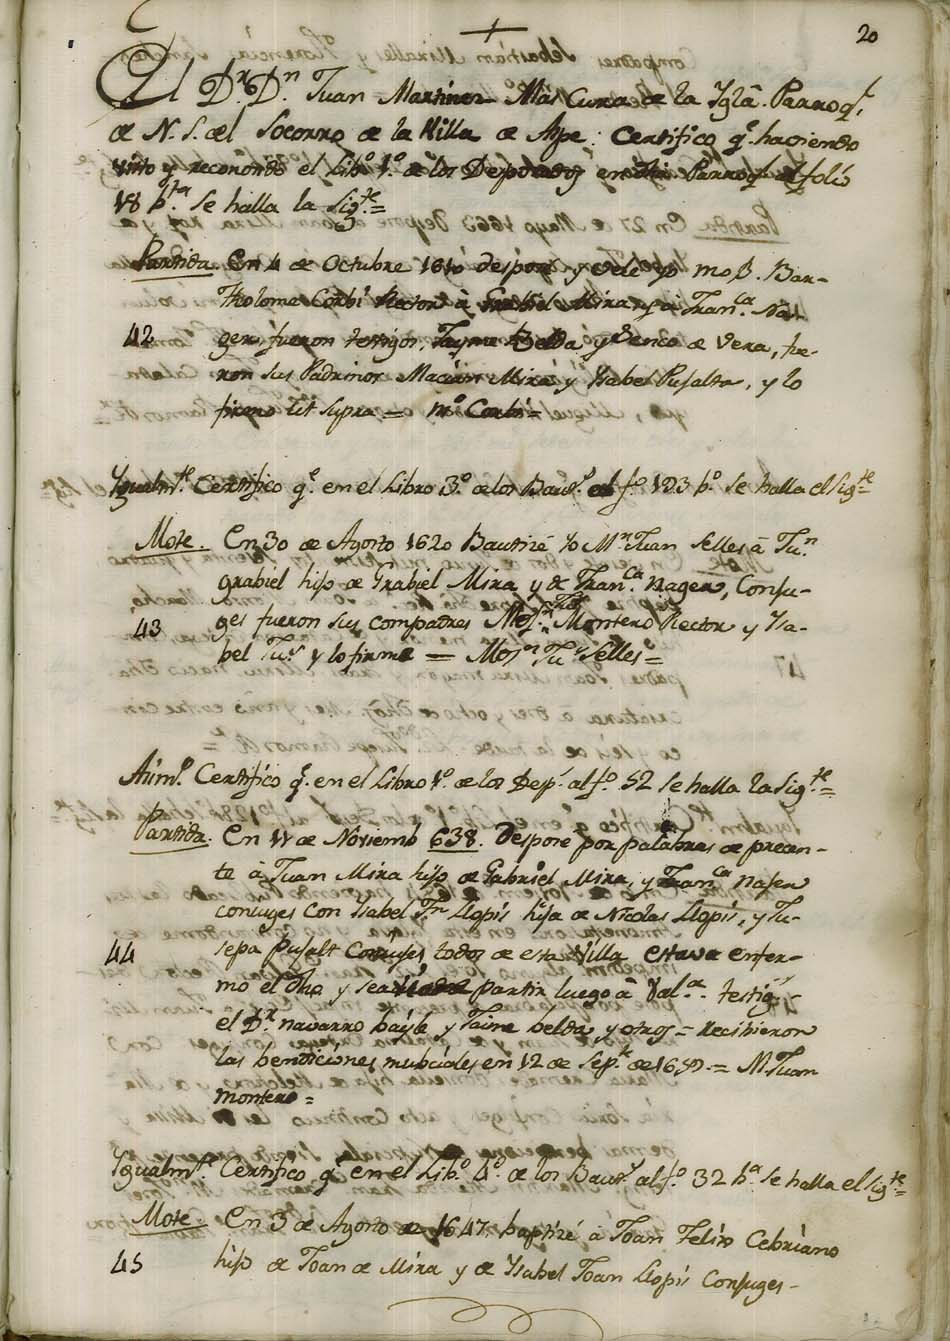 20
El Dr. Dn Juan Martinez Mas Cura de la Yglã. Parroql.
de N. S. del Socorro de la Villa de Aspe: Certifico q.e haviendo
visto y reconosido el Lib.o 1.o de los Desposados en dha Parroql. al folio
18 b.ta se halla la Sig.te =
Partida. En 4 de Octubre 1610 despose y vele yo mo B. Bar-
tholome Corbi Rector à Grabiel Mira y a Fran.ca Na-
42 ger, fueron testigos, Jayme Belda y de Vera, fue-
ron sus Padrinos Macian Mira y Ysabel Pujalta, y lo
firmo Ut Supra = Mo. Corbi =
Ygualm.te Certifico q.e en el Libro 3.o de los Baut.s al f.o 193 b.o se halla el Sig.te =
Mote. En 30 de Agosto 1620 Bautizé Yo Mn. Juan Selles à Ju.n
grabiel hijo de Grabiel Mira y de Fran.ca Nager, Conju-
43 ges fueron sus compadres Mosn. Thos. Montero Rector y Ysa-
bel Ju.s y lo firme = Mosn. Ju.s Selles =
Asim.o Certifico q.e en el Libro 1.o de los Desp.s al f.o 52 se halla la Sig.te =
Partida. En 11 de Noviemb 638. Despose por palabras de precen-
te à Juan Mira hijo de Gabriel Mira y Fran.ca Najer
conjuges con Ysabel Jn. Llopis hija de Nicolas Llopis, y Ju-
44 sepa Pujalt Conjuges, todos de esta Villa estava enfer-
mo el dho y se partir luego à Val.a testig.s
el Dr. navarro bayle y Jaime belda y otros = Recibieron
las bendiciónes nubciales en 12 de Sep.e de = M. Juan
montero =
Ygualm.te Certifico q.e en el Lib.o 4.o de los Baut.s al f.o 32 b.a se halla el Sig.te =
Mote. En 3 de Agosto de 1647. baptizé à Joan Felix Cebriano
45 hijo de Joan de Mira y de Ysabel Joan Llopis Conjuges -